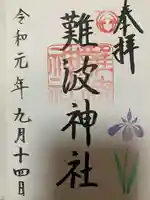 奉拝
難波神社
令和元年九月十四日